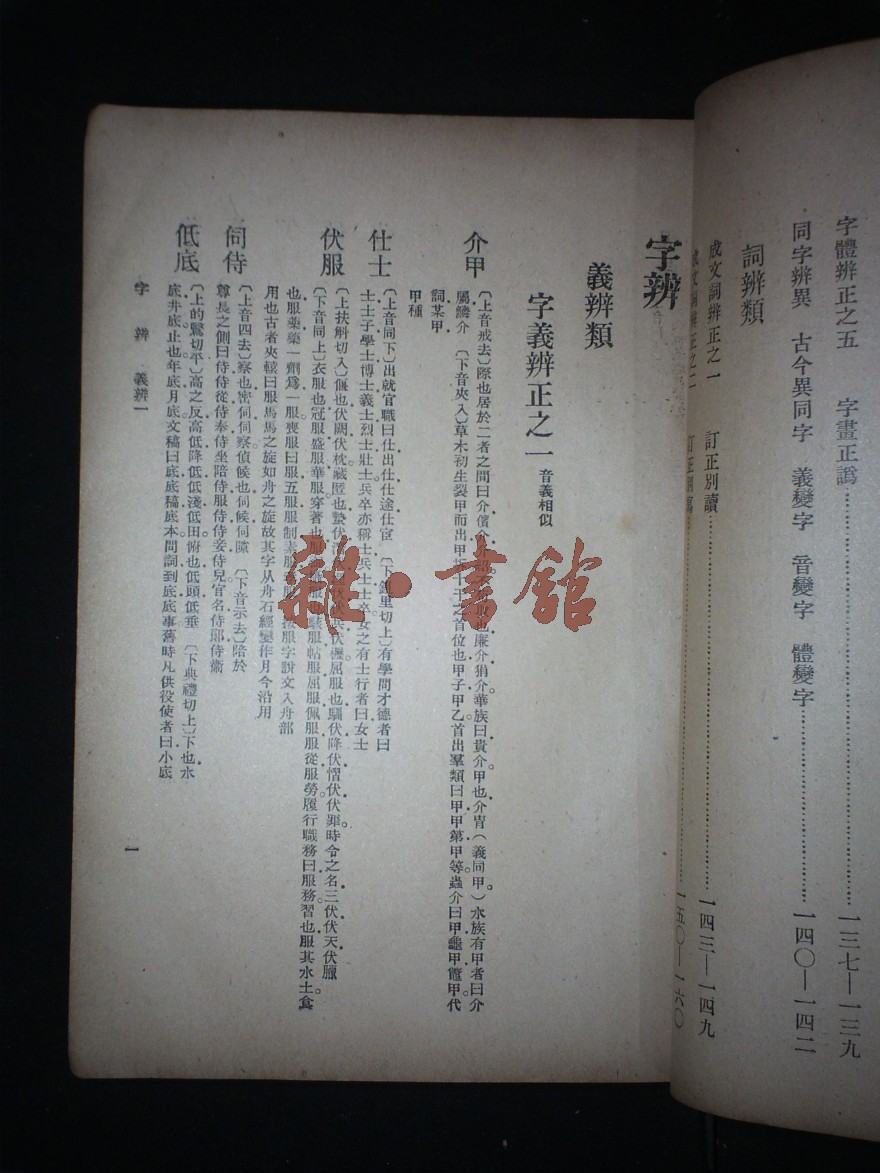 字體辨正之五　字畫正譌……一三七—一三九
同字辨異　古今異同字　義變字　音變字　體變字……一四〇—一四二
詞辨類
成文詞辨正之一　訂正別讀……一四三—一四九
成文詞辨正之二　訂正別寫……一五〇—一六〇
字辨
義辨類
字義辨正之一　音義相似
介甲
〔上音戒去〕際也居於二者之間曰介
廉介狷介華族曰貴介甲也介冑（義同甲）水族有甲者曰介
屬鱗介　〔下音夾入〕草木初生裂甲而出甲
十干之首位也甲子甲乙首出羣類曰甲甲第甲等蟲介曰甲龜甲鼈甲代
詞某甲
甲種
仕士
〔上音同下〕出就官職曰仕出仕仕途仕宦　〔下
里切上〕有學問才德者曰
士士子學士博士義士烈士壯士兵卒亦稱士兵士士卒女之有士行者曰女士
伏服
〔上扶斛切入〕偃也伏闕伏枕藏匿也蟄伏
屈服也馴伏降伏慴伏伏罪時令之名三伏伏天伏臘
〔下音同上〕衣服也冠服盛服華服穿著也服
服帖服屈服佩服服從服勞履行職務曰服務習也服其水土食
也服藥藥一劑爲一服喪服曰服五服服制素服
服字說文入舟部
用也古者夾轅曰服馬馬之旋如舟之旋故其字从舟石經變作月今沿用
伺侍
〔上音四去〕察也密伺伺察偵候也伺候伺隙　〔下音示去〕陪於
尊長之側曰侍侍從侍奉侍坐陪侍服侍侍妾侍兒官名侍郎侍衞
低底
〔上的驚切平〕高之反高低降低低淺低田俯也低頭低垂　〔下典禮切上〕下也水
底井底止也年底月底文稿曰底底稿底本問詞到底底事舊時凡供役使者曰小底
字　辨　義辨一
一
雜·書館